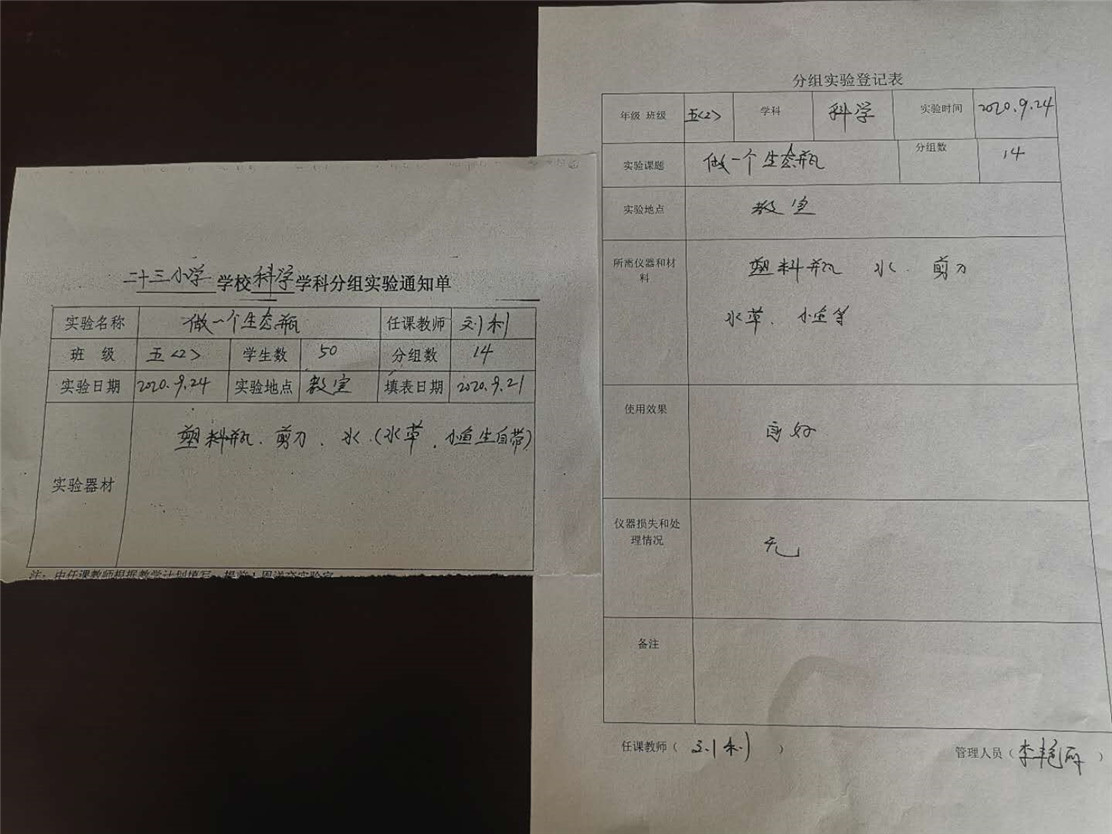 二十三小学 学校 科学 学科分组实验通知单
实验名称 做一个生态瓶 任课教师 刘利
班 级 五<2> 学生数 50 分组数 14
实验日期 2020.9.24 实验地点 教室 填表日期 2020.9.21
实验器材 塑料瓶、剪刀、水、(水草、小鱼生自带)
注：由任课教师根据教学计划填写，提前1周送交实验室
分组实验登记表
年级 班级 五<2> 学科 科学 实验时间 2020.9.24
实验课题 做一个生态瓶 分组数 14
实验地点 教室
所需仪器和材
料
塑料瓶 水、剪刀
水草、小鱼等
使用效果 良好
仪器损失和处
理情况
无
备注
任课教师（刘利） 管理人员（李艳丽）